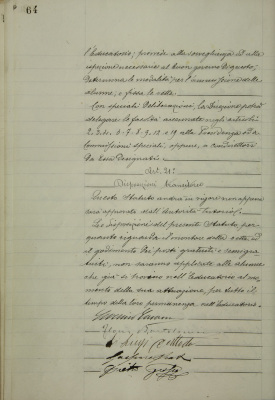 64
l'Educatorio; provvede alla sorveglianza ed alle
ispezioni necessarie al buon governo di questo;
determina le modalità per l'ammissione delle
alunne, e fissa le rette.
Con speciali deliberazioni, la Direzione potrà
delegare le facoltà accennate negli articoli
alla Presidenza od a
Commissioni speciali, oppure a
da essa designati.
Art. 21°
Disposizioni transitorie
Questo Statuto andrà in vigore non appena
sarà approvato dall'Autorità Tutoria.
Le disposizioni del presente Statuto per
quanto riguarda l'aumento della retta, ed
il godimento dei posti gratuiti e semigra-
tuiti, non saranno applicate alle alunne
che già si trovano nell'Educatorio al mo-
mento della sua attuazione, per tutto il
tempo della loro permanenza nell'Educatorio.